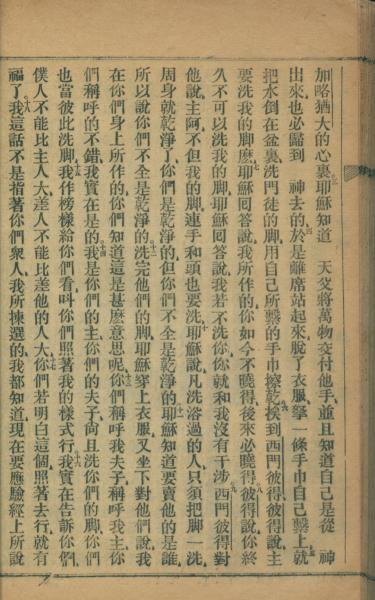 加略猶大的心裏耶穌知道　天父將萬物交付他手並且知道自己是從　神
出來也必歸到　神去的於是離席站起來脫了衣服拏一條手巾自己繫上就
把水倒在盆裏洗門徒的脚用自己所繫的手巾擦乾挨到西門彼得彼得說主
要洗我的脚麽耶穌回答說我所作的你如今不曉得後來必曉得彼得說你終
久不可以洗我的脚耶穌回答說我若不洗你你就和我沒有干涉西門彼得對
他說主阿不但我的脚連手和頭也要洗耶穌說凡洗浴過的人只須把脚一洗
周身就乾淨了你們是乾淨的但你們不全是乾淨的耶穌知道要賣他的是誰
所以說你們不全是乾淨的洗完他們的脚耶穌穿上衣服又坐下對他們說我
在你們身上所作的你們知道這是甚麽意思呢你們稱呼我夫子稱呼我主你
們稱呼的不錯我實在是的我是你們的主你們的夫子尙且洗你們的脚你們
也當彼此洗脚我作榜樣給你們看叫你們照著我的樣式行我實在告訴你們
僕人不能比主人大差人不能比差他的人大你們若明白這個照著去行就有
福了我這話不是指著你們衆人我所揀選的我都知道現在要應驗經上所說